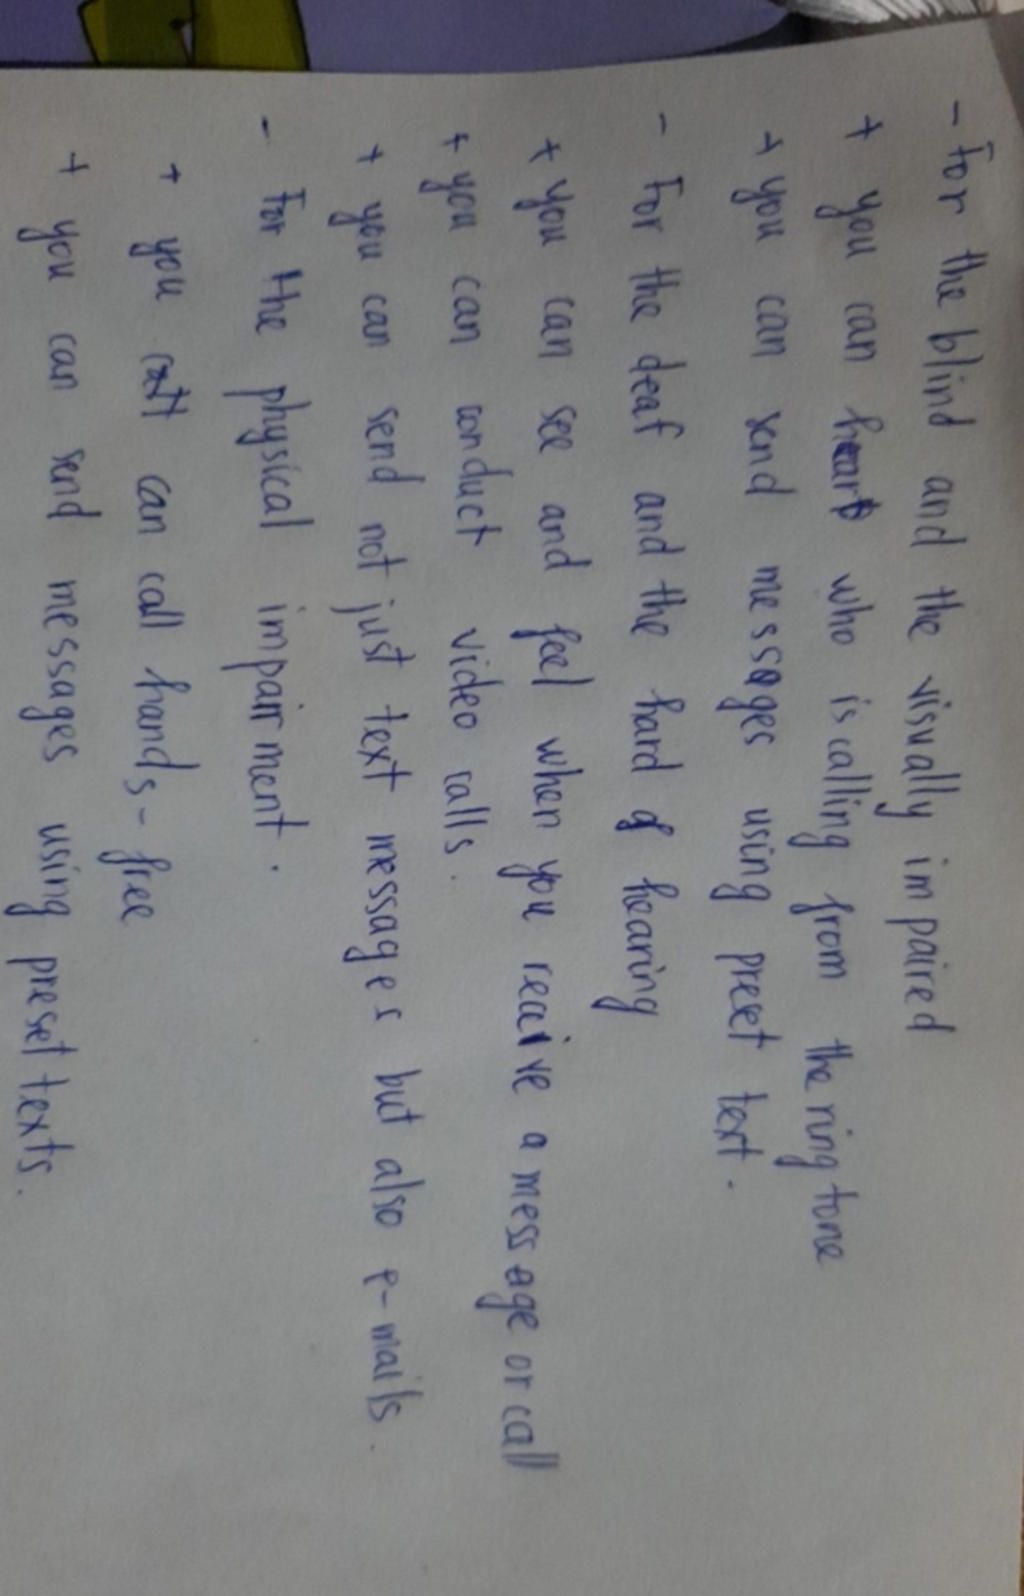 - For the blind and the visually impaired
+ you can hear who is calling from the ring tone
+ you can send messages using preset text.
- For the deaf and the hard of hearing
+ you can see and feel when you receive a message or call
+ you can conduct video calls.
+ you can send not just text messages but also e-mails.
- For the physical impairment.
+ you can call hands-free
+ you can send messages using preset texts.